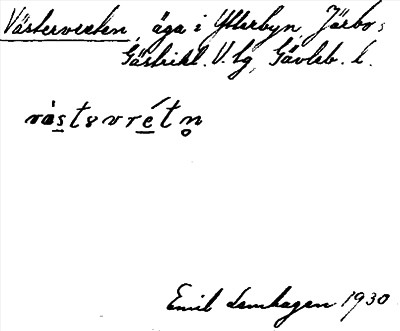 Västervreten, äga i Ytterbyn, Järbo s
Gästrikl. V. tg, Gävleb. l.
västərvrétn̥
Emil Lenhagen 1930